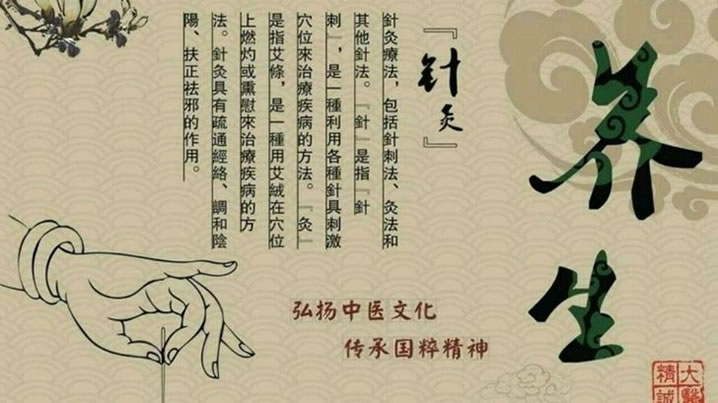 养生
『針灸』
針灸療法，包括針刺法、灸法和
其他針法。『針』是指『針
刺』，是一種利用各種針具刺激
穴位來治療疾病的方法。『灸』
是指艾條，是一種用艾絨在穴位
上燃灼或熏慰來治療疾病的方
法。針灸具有疏通經絡、調和陰
陽、扶正祛邪的作用。
弘扬中医文化
传承国粹精神
大醫
精誠